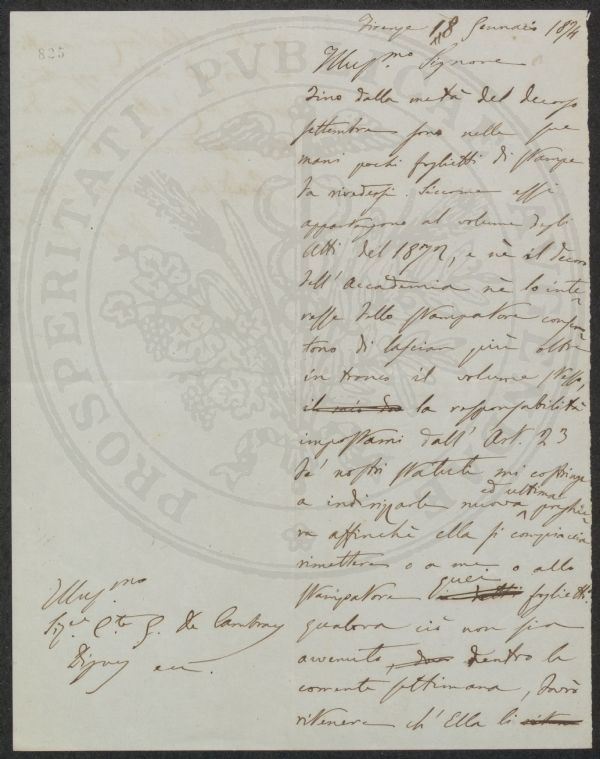 825
Firenze 18 Gennaio 1874
Illus.mo Signore
Fino dalla metà del decorso
settembre sono nelle sue
mani pochi foglietti di stampe
da rivedersi. Siccome essi
appartengono al volume degli
Atti del 1872, e nè il decoro
dell'Accademia nè lo inte-
resse dello stampatore consen-
tono di lasciar più oltre
in tronco il volume stesso,
la responsabilità
impostami dall'Art. 23
de' nostri statuti mi costringe
a indirizzarle nuova ed ultima preghie-
ra affinchè ella si compiaccia
rimettere o a me o allo
stampatore quei foglietti:
qualora ciò non sia
avvenuto, dentro la
corrente settimana, dovrò
ritenere ch'Ella li
Illus.mo
Sig.re C.te G. De Cambray
Digny ecc.
PROSPERITATI PVBLICAE